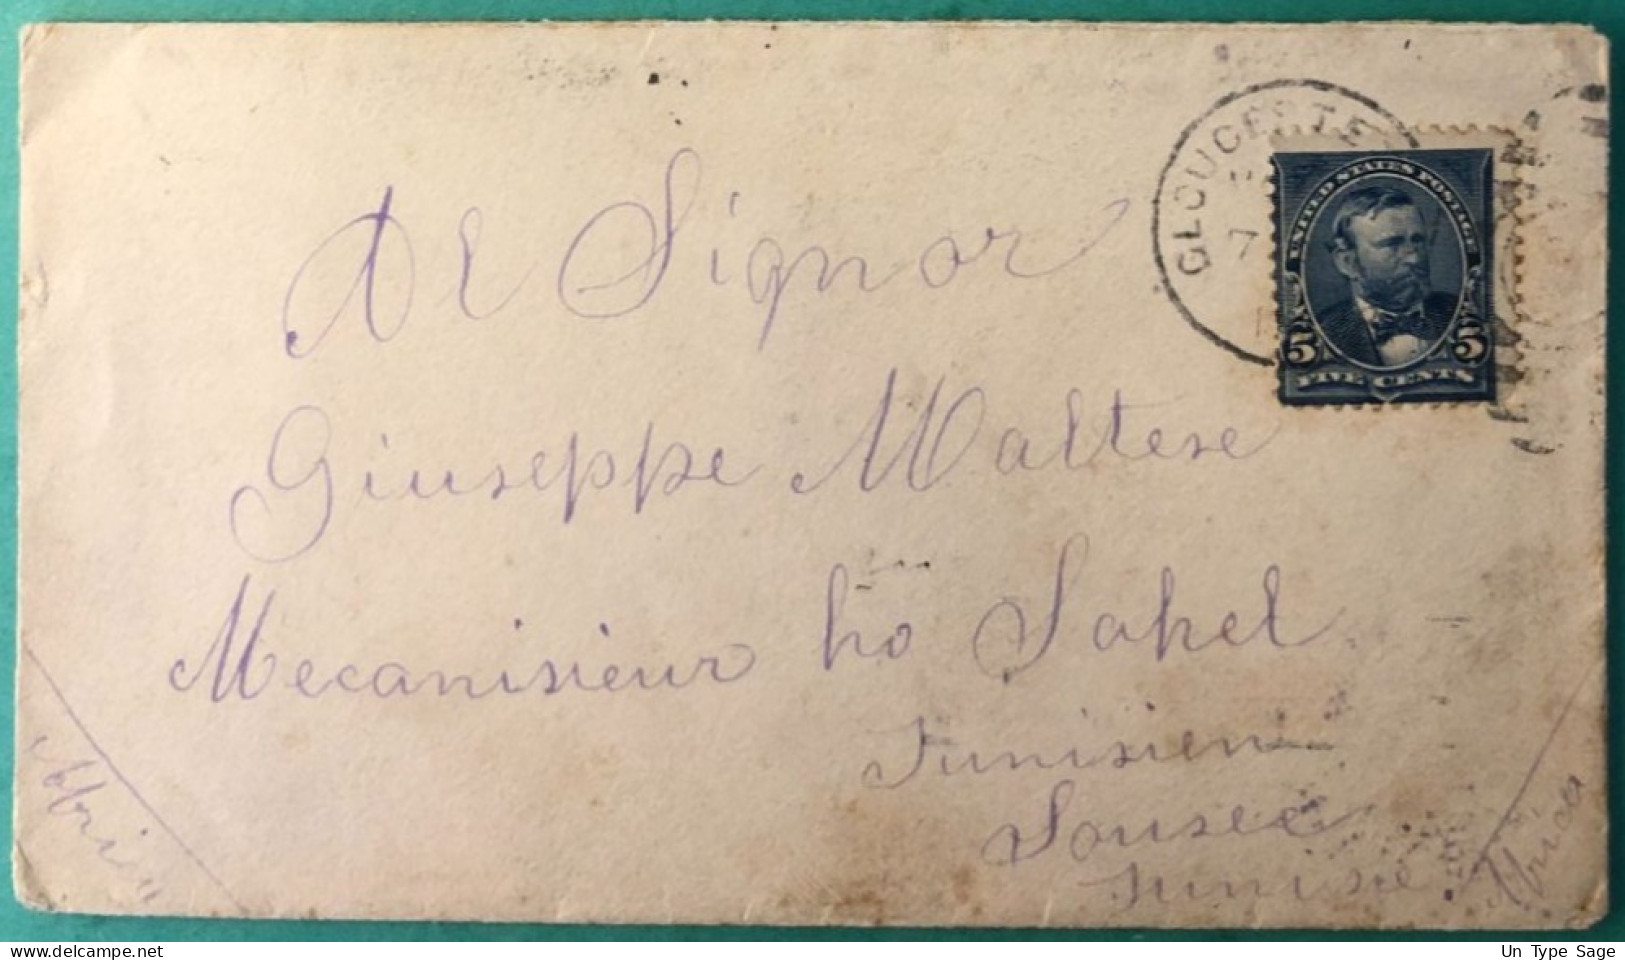 GLOUCESTE
7
UNITED STATES POSTAGE
5 5
FIVE CENTS
Al Signor
Giuseppe Maltese
Mecanisieur ho Sahel
Tunisien
Sousee
Tunisie
Africa
Africa
Un Type Sage